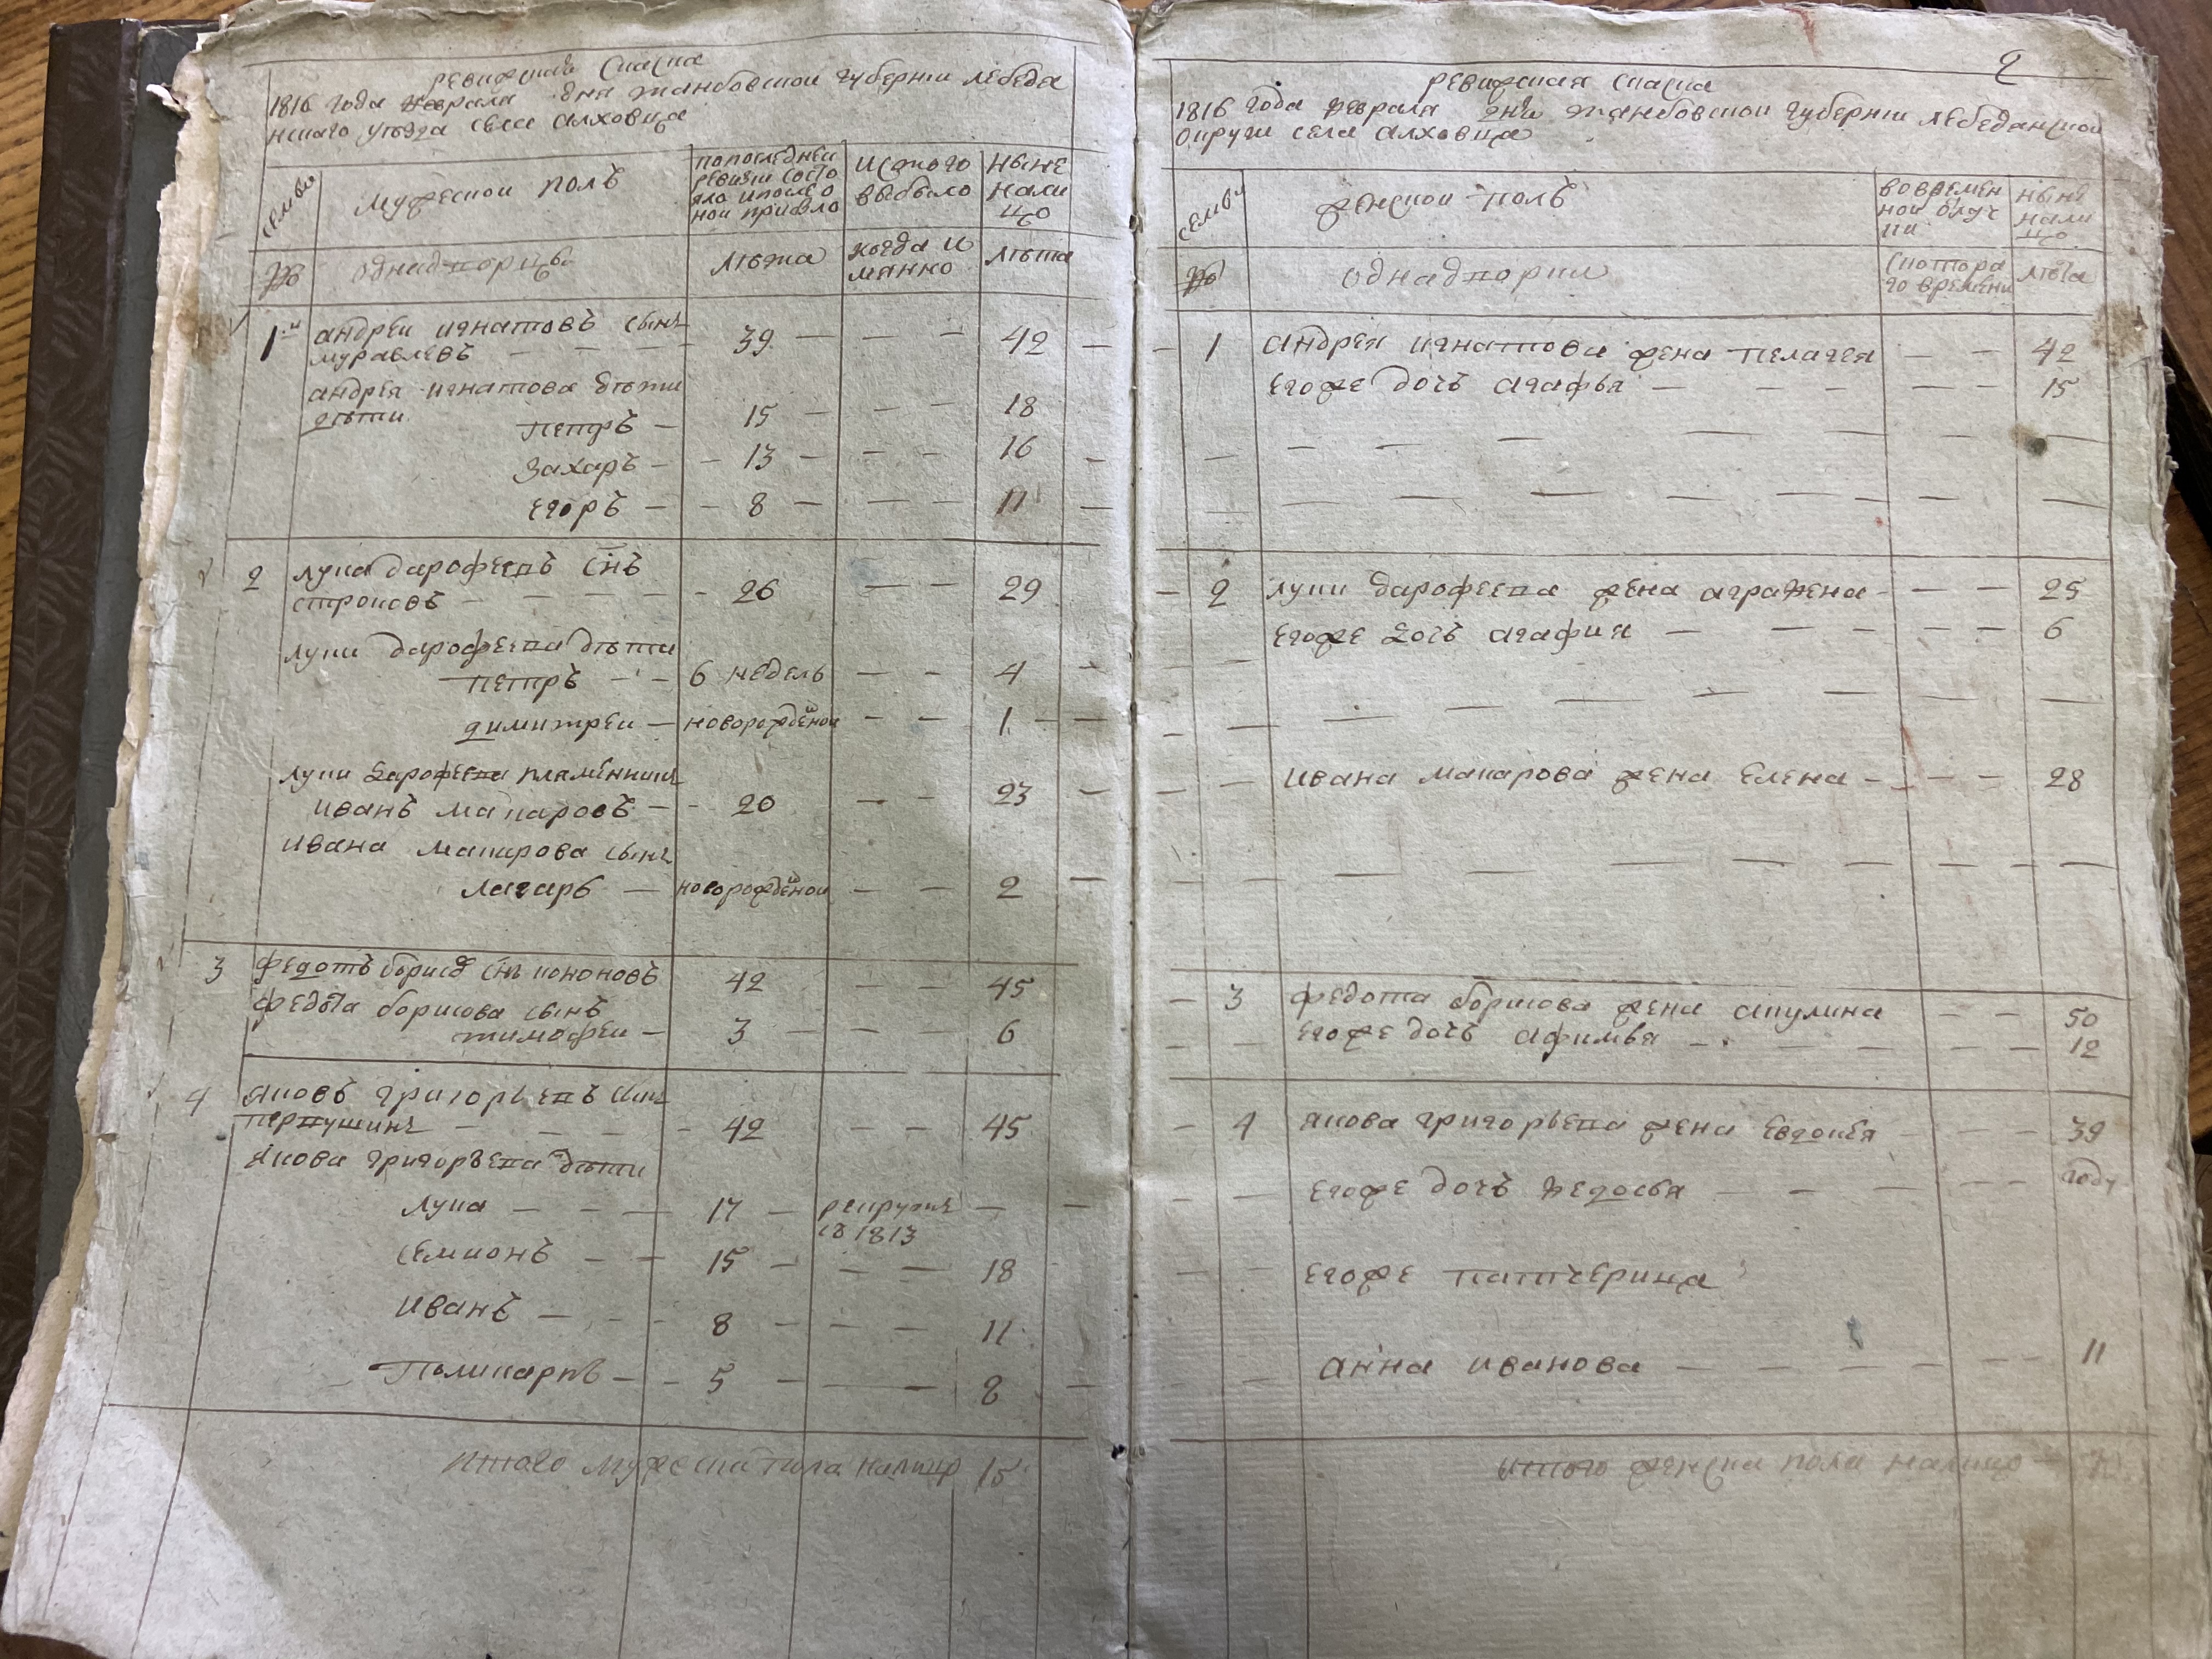 ревижская скаска
1816 года февраля дня танбовской губернии лебедя
нскаго уезда села алховца
семьи
Мужескои полъ
попоследнеи
ревизи состо
яло ипосле о
нои прибыло
Истого
выбыло
ныне
нали
цо
№
однадворцы
лѣта
когда и
мянно
лѣта
1й
андреи игнатовъ сынъ
муравлевъ — — — 39 — — — 42 —
андрея игнатова дѣти
дѣти
петръ — 15 — — — 18
Захаръ — — 13 — — — 16 —
Егоръ — — 8 — — — 11 —
2 лупа дарофеевъ снъ
строковъ — — — — — 26 — — 29
лупи дарофеева дѣти
петръ — — 6 недель — — 4 —
димитреи — новорожденои — — 1 — —
лупи дарофеева племенникъ
иванъ макаровъ — — 20 — — 23 —
ивана макарова сынъ
лазарь — новорожденои — — 2 —
3 федотъ борисо снъ кононовъ 42 — — 45
федота борисова сынъ
тимофеи — 3 — — 6
4 яковъ григорьевъ снъ
первушинъ — — — — 42 — — 45
якова григорьева дѣти
лука — — — 17 — рекрутъ — —
въ 1813
семионъ — — 15 — — — 18
иванъ — — — 8 — — — 11
Поликарпъ — — 5 — — — 8 —
итого мужеска пола налицо 15
2
ревижская скаска
1816 года февраля дня танбовской губернии лебеданской
округи села алховца
семьи
женскои полъ
вовремен
нои отлуч
ки
ныне
нали
цо
№
однадворки
скотора
го времени
лѣта
— 1 андрея игнатова жена пелагея — — 42
Егоже дочь агафья — — — 15
2 лупи дарофеева жена аграфена — — — 25
Егоже дочь агафия — — — — — 6
ивана макарова жена елена — — — 28
— 3 федота борисова жена акулина — — 50
Егоже дочь афимья — — — — — 12
— 4 якова григорьева жена Евдокея — — 39
Егоже дочь федосья — — — — — году
Егоже патчерица
анна иванова — — — — — 11
итого женска пола налицо